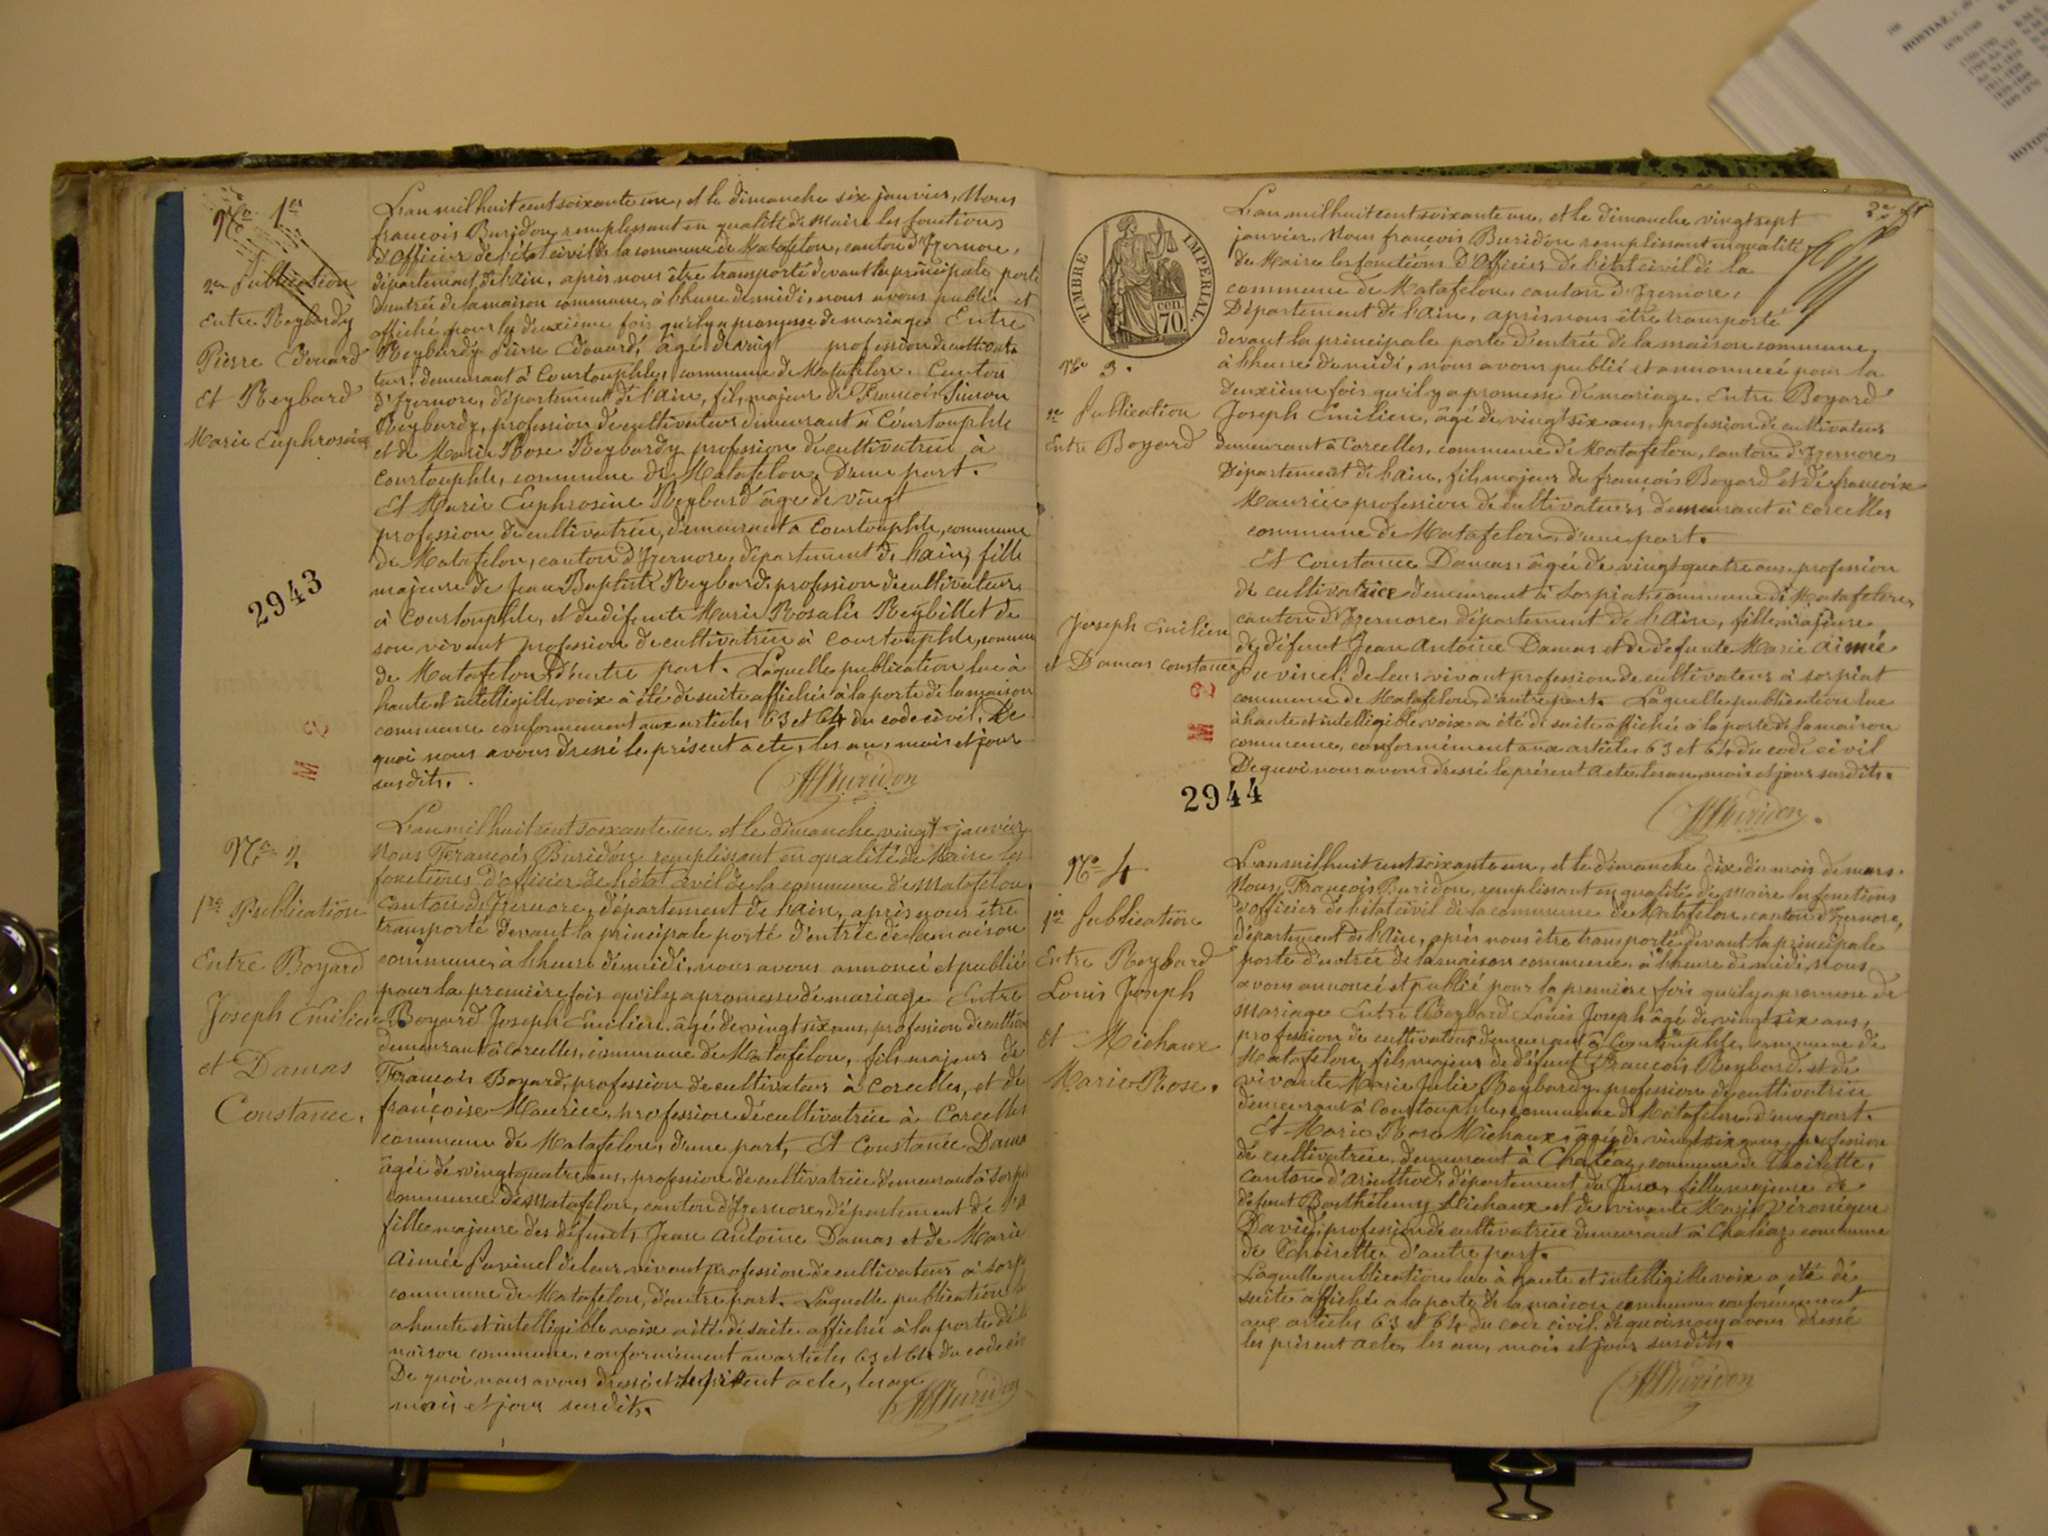 No 1er
2e Publication
Entre Reybardy
Pierre Edouard
Et Reybard
Marie Euphrosine
2943
M C
L'an mil huit cent soixante un, et le dimanche six janvier, Nous
françois Buridon remplissant en qualité de Maire les fonctions
d'officier de l'état civil de la commune de Matafelon, canton d'Izernore,
département de l'ain, après nous être transporté devant la principale porte
d'entrée de la maison commune, à l'heure de midi, nous avons publié et
affiché pour la deuxième fois qu'il y a promesse de mariage Entre
Reybardy Pierre Edouard, âgé de vingt profession de cultiva-
teur, demeurant à Courtouphle, commune de Matafelon, Canton
d'Izernore, département de l'ain, fils majeur de François Simon
Reybardy, profession de cultivateur demeurant à Courtouphle
et de Marie Rose Reybardy profession de cultivatrice à
Courtouphle, commune de Matafelon, D'une part.
Et Marie Euphrosine Reybard âgée de vingt
profession de cultivatrice, demeurant à Courtouphle, commune
de Matafelon, canton d'Izernore, département de l'ain, fille
majeure de Jean Baptiste Reybard, profession de cultivateur
à Courtouphle, et de défunte Marie Rosalie Reybillet de
son vivant profession de cultivatrice à Courtouphle, commune
de Matafelon, D'autre part. Laquelle publication lue à
haute et intelligible voix à été de suite affichée à la porte de la maison
commune conformement aux articles 63 et 64 du code civil, De
quoi nous avons dressé le présent acte, les an, mois et jour
susdits.
Buridon
No 2
1re Publication
Entre Boyard
Joseph Emilien
et Damas
Constance.
L'an mil huit cent soixante un, et le dimanche vingt janvier
Nous François Buridon remplissant en qualité de Maire les
fonctions d'officier de l'état civil de la commune de Matafelon,
Canton d'Izernore, département de l'ain, après nous être
transporté devant la principale porte d'entrée de la maison
commune, à l'heure de midi, nous avons annoncé et publié
pour la première fois qu'il y a promesse de mariage Entre
Boyard Joseph Emilien, âgé de vingt six ans, profession de cultiva
demeurant à Corcelles, commune de Matafelon, fils majeur de
François Boyard, profession de cultivateur à Corcelles, et de
françoise Maurice, profession de cultivatrice à Corcelles
commune de Matafelon, d'une part, Et Constance Damas
âgée de vingt quatre ans, profession de cultivatrice demeurant à Sorpi
commune de Matafelon, canton d'Izernore, département de l'a
fille majeure des défunts Jean Antoine Damas et de Marie
Aimée Savinel de leur vivant profession de cultivateur à Sorp
commune de Matafelon, d'autre part. Laquelle publication
a haute et intelligible voix a été de suite affichée à la porte de l
maison commune, conformément aux articles 63 et 64 du code ci
De quoi nous avons dressé le présent acte, les an
mois et jour susdits.
Buridon
2e
TIMBRE IMPERIAL
70 cen
No 3.
2e Publication
Entre Boyard
Joseph Emilien
et Damas Constance
M C
2944
L'an mil huit cent soixante un, et le dimanche vingt sept
janvier, Nous françois Buridon remplissant en qualité
de Maire les fonctions d'Officier de l'état civil de la
commune de Matafelon, canton d'Izernore,
Département de l'ain, après nous être transporté
devant la principale porte d'entrée de la maison commune,
à l'heure de midi, nous avons publié et annoncé pour la
deuxième fois qu'il y a promesse de mariage, Entre Boyard
Joseph Emilien, âgé de vingt six ans, profession de cultivateur
demeurant à Corcelles, commune de Matafelon, canton d'Izernore,
Département de l'ain, fils majeur de françois Boyard et de françoise
Maurice profession de cultivateurs demeurant à Corcelles
commune de Matafelon, d'une part.
Et Constance Damas, âgée de vingt quatre ans profession
de cultivatrice demeurant à Sorpiat, commune de Matafelon,
canton d'Izernore, département de l'Ain, fille majeure
de défunt Jean Antoine Damas et de défunte Marie Aimée
Savinel, de leur vivant profession de cultivateurs à Sorpiat
commune de Matafelon, d'autre part. Laquelle publication lue
à haute et intelligible voix a été de suite affichée à la porte de la maison
commune, conformément aux articles 63 et 64 du code civil
De quoi nous avons dressé le présent acte les an, mois et jour susdits.
Buridon
No 4
1re Publication
Entre Reybard
Louis Joseph
Et Michaux
Marie Rose.
L'an mil huit cent soixante un, et le dimanche dix du mois de mars.
Nous François Buridon, remplissant en qualité de maire les fonctions
d'officier de l'état civil de la commune de Matafelon, canton d'Izernore,
département de l'Ain, après nous être transporté devant la principale
porte d'entrée de la maison commune, à l'heure de midi, nous
avons annoncé et publié pour la première fois qu'il y a promesse de
mariage Entre Reybard Louis Joseph âgé de vingt six ans,
profession de cultivateur demeurant à Courtouphle, commune de
Matafelon, fils majeur de défunt François Reybard, et de
vivante Marie Julie Reybardy profession de cultivatrice
demeurant à Courtouphle, commune de Matafelon, d'une part.
Et Marie Rose Michaux, âgée de vingt six ans, profession
de cultivatrice, demeurant à Chaléaz, commune de Thoirette,
Canton d'Arinthod, département du Jura, fille majeure de
défunt Barthélemy Michaux et de vivante Marie Véronique
David, profession de cultivatrice demeurant à Chaléaz commune
de Thoirette, d'autre part.
Laquelle publication lue à haute et intelligible voix a été de
suite affichée à la porte de la maison commune conformément
aux articles 63 et 64 du code civil, de quoi nous avons dressé
les présent acte, les an, mois et jour susdits.
Buridon